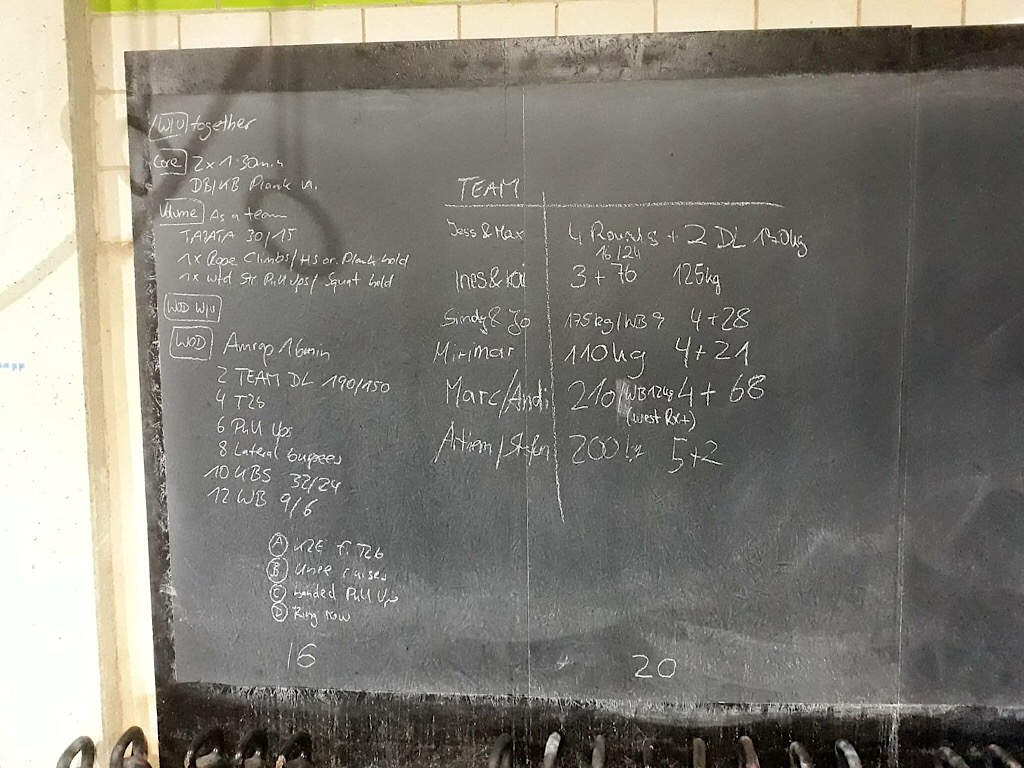 W/U together
Core 2 x 1:30min
DB/KB Plank
Volume As a team
TABATA 30/15
1x Rope Climbs/HS or Plank hold
1x wtd Str Pull Ups/ Squat hold
WOD W/U
WOD Amrap 16min
2 TEAM DL 190/150
4 T2b
6 Pull Ups
8 Lateral burpees
10 KBS 32/24
12 WB 9/6
A K2E f. T2b
B Knee raises
C banded Pull Ups
D Ring row
16
TEAM
Jess & Max 4 Rounds + 2 DL 120kg
16/24
Ines & Kai 3 + 76 125kg
Sindy & Jo 175kg/WB 9 4+28
Mirimar 110kg 4+21
Marc/Andi 210/WB12kg 4+ 68
(west Rx+)
200kg 5+2
20